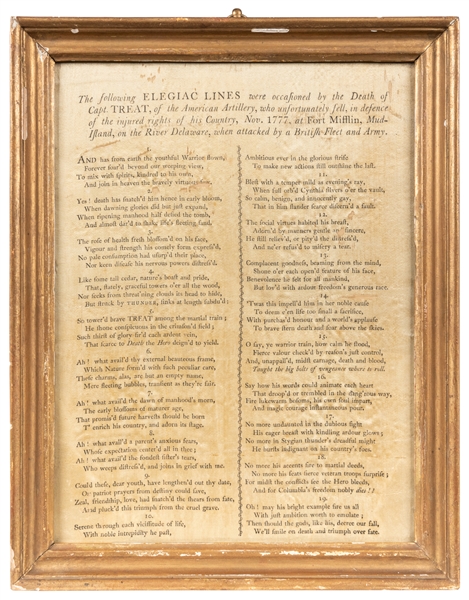 The following ELEGIAC LINES were occasioned by the Death of
Capt. TREAT, of the American Artillery, who unfortunately fell, in defence
of the injured rights of his Country, Nov. 1777, at Fort Mifflin, Mud-
Island, on the River Delaware, when attacked by a British Fleet and Army.
AND has from earth the youthful Warrior flown,
Forever soar'd beyond our weeping view,
To mix with spirits, kindred to his own,
And join in heaven the bravely virtuous few.
2.
Yes! death has snatch'd him hence in early bloom,
When dawning glories did but just expand,
When ripening manhood half defied the tomb,
And almost dar'd to shake life's fleeting sand.
3.
The rose of health fresh blossom'd on his face,
Vigour and strength his comely form express'd,
No pale consumption had usurp'd their place,
Nor keen disease his nervous powers distress'd.
4.
Like some tall cedar, nature's boast and pride,
That, stately, graceful towers o'er all the wood,
Nor seeks from threat'ning clouds its head to hide,
But struck by THUNDER, sinks at length subdu'd:
5.
So tower'd brave TREAT among the martial train;
He shone conspicuous in the crimson'd field;
Such thirst of glory fir'd each ardent vein,
That scarce to Death the Hero deign'd to yield.
6.
Ah! what avail'd thy external beauteous frame,
Which Nature form'd with such peculiar care,
These charms, alas, are but an empty name,
Mere fleeting bubbles, transient as they're fair.
7.
Ah! what avail'd the dawn of manhood's morn,
The early blossoms of maturer age,
That promis'd future harvests should be born
To enrich his country, and adorn its stage.
8.
Ah! what avail'd a parent's anxious fears,
Whose expectation center'd all in thee;
Ah! what avail'd the fondest sister's tears,
Who weeps distress'd, and joins in grief with me.
9.
Could these, dear youth, have lengthen'd out thy date,
Or patriot prayers from destiny could save,
Zeal, friendship, love, had snatch'd the shears from fate,
And pluck'd this triumph from the cruel grave.
10.
Serene through each vicissitude of life,
With noble intrepidity he past,
Ambitious ever in the glorious strife
To make new actions still outshine the last.
11.
Blest with a temper mild as evening's ray,
When full orb'd Cynthia silvers o'er the vault,
So calm, benign, and innocently gay,
That in him slander scarce discern'd a fault.
12.
The social virtues habited his breast,
Adorn'd by manners gentle as sincere,
He still reliev'd, or pity'd the distress'd,
And ne'er refus'd to misery a tear.
13.
Complacent goodness, beaming from the mind,
Shone o'er each open'd feature of his face,
Benevolence he felt for all mankind,
But lov'd with ardour freedom's generous race.
14.
'Twas this impell'd him in her noble cause
To deem e'en life too small a sacrifice,
With purchas'd honour and a world's applause
To brave stern death and soar above the skies.
15.
O say, ye warrior train, how calm he stood,
Fierce valour check'd by reason's just control,
And, unappall'd, midst carnage, death and blood,
Taught the big bolts of vengeance where to roll.
16.
Say how his words could animate each heart
That droop'd or trembled in the dang'rous way,
Fire lukewarm bosoms, his own soul impart,
And magic courage instantaneous pour.
17.
No more undaunted in the dubious fight
His eager breast with kindling ardour glows;
No more in Stygian thunder's dreadful might
He hurls indignant on his country's foes.
18.
No more his accents fire to martial deeds,
No more his feats fierce veteran troops surprise;
For midst the conflicts see the Hero bleeds,
And for Columbia's freedom nobly dies!!
19.
Oh! may his bright example fire us all
With just ambition worth to emulate;
Then should the gods, like his, decree our fall,
We'll smile on death and triumph over fate.